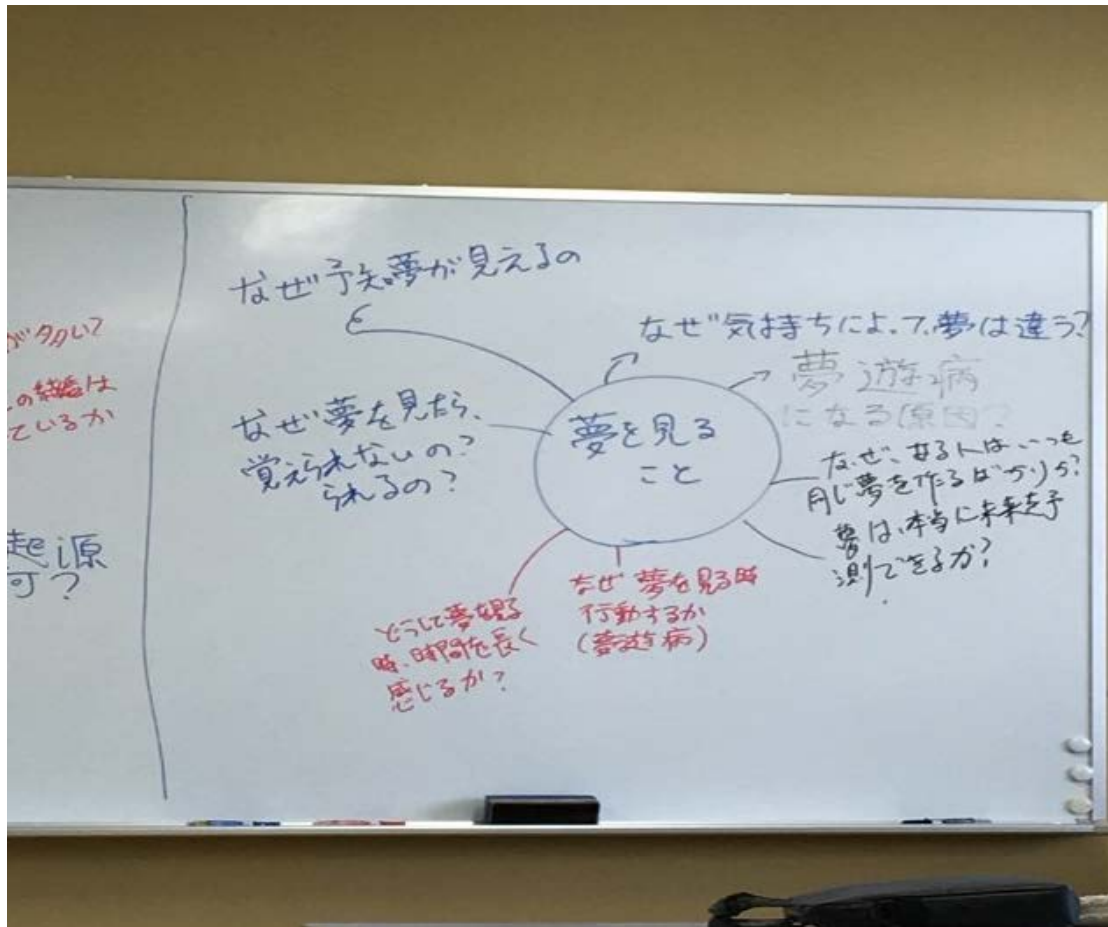 が多い?
の結婚は
ているか
起源
何?
なぜ予知夢が見えるの
なぜ気持ちによって夢は違う?
夢遊病
になる原因?
なぜ夢を見たら、
覚えられないの?
られるの?
夢を見る
こと
なぜ、ある人は、いつも
同じ夢を作るばかりか?
夢は、本当に未来を予
測できるか?
なぜ 夢を見る時
行動するか
(夢遊病)
どうして夢を見る
時、時間を長く
感じるか?